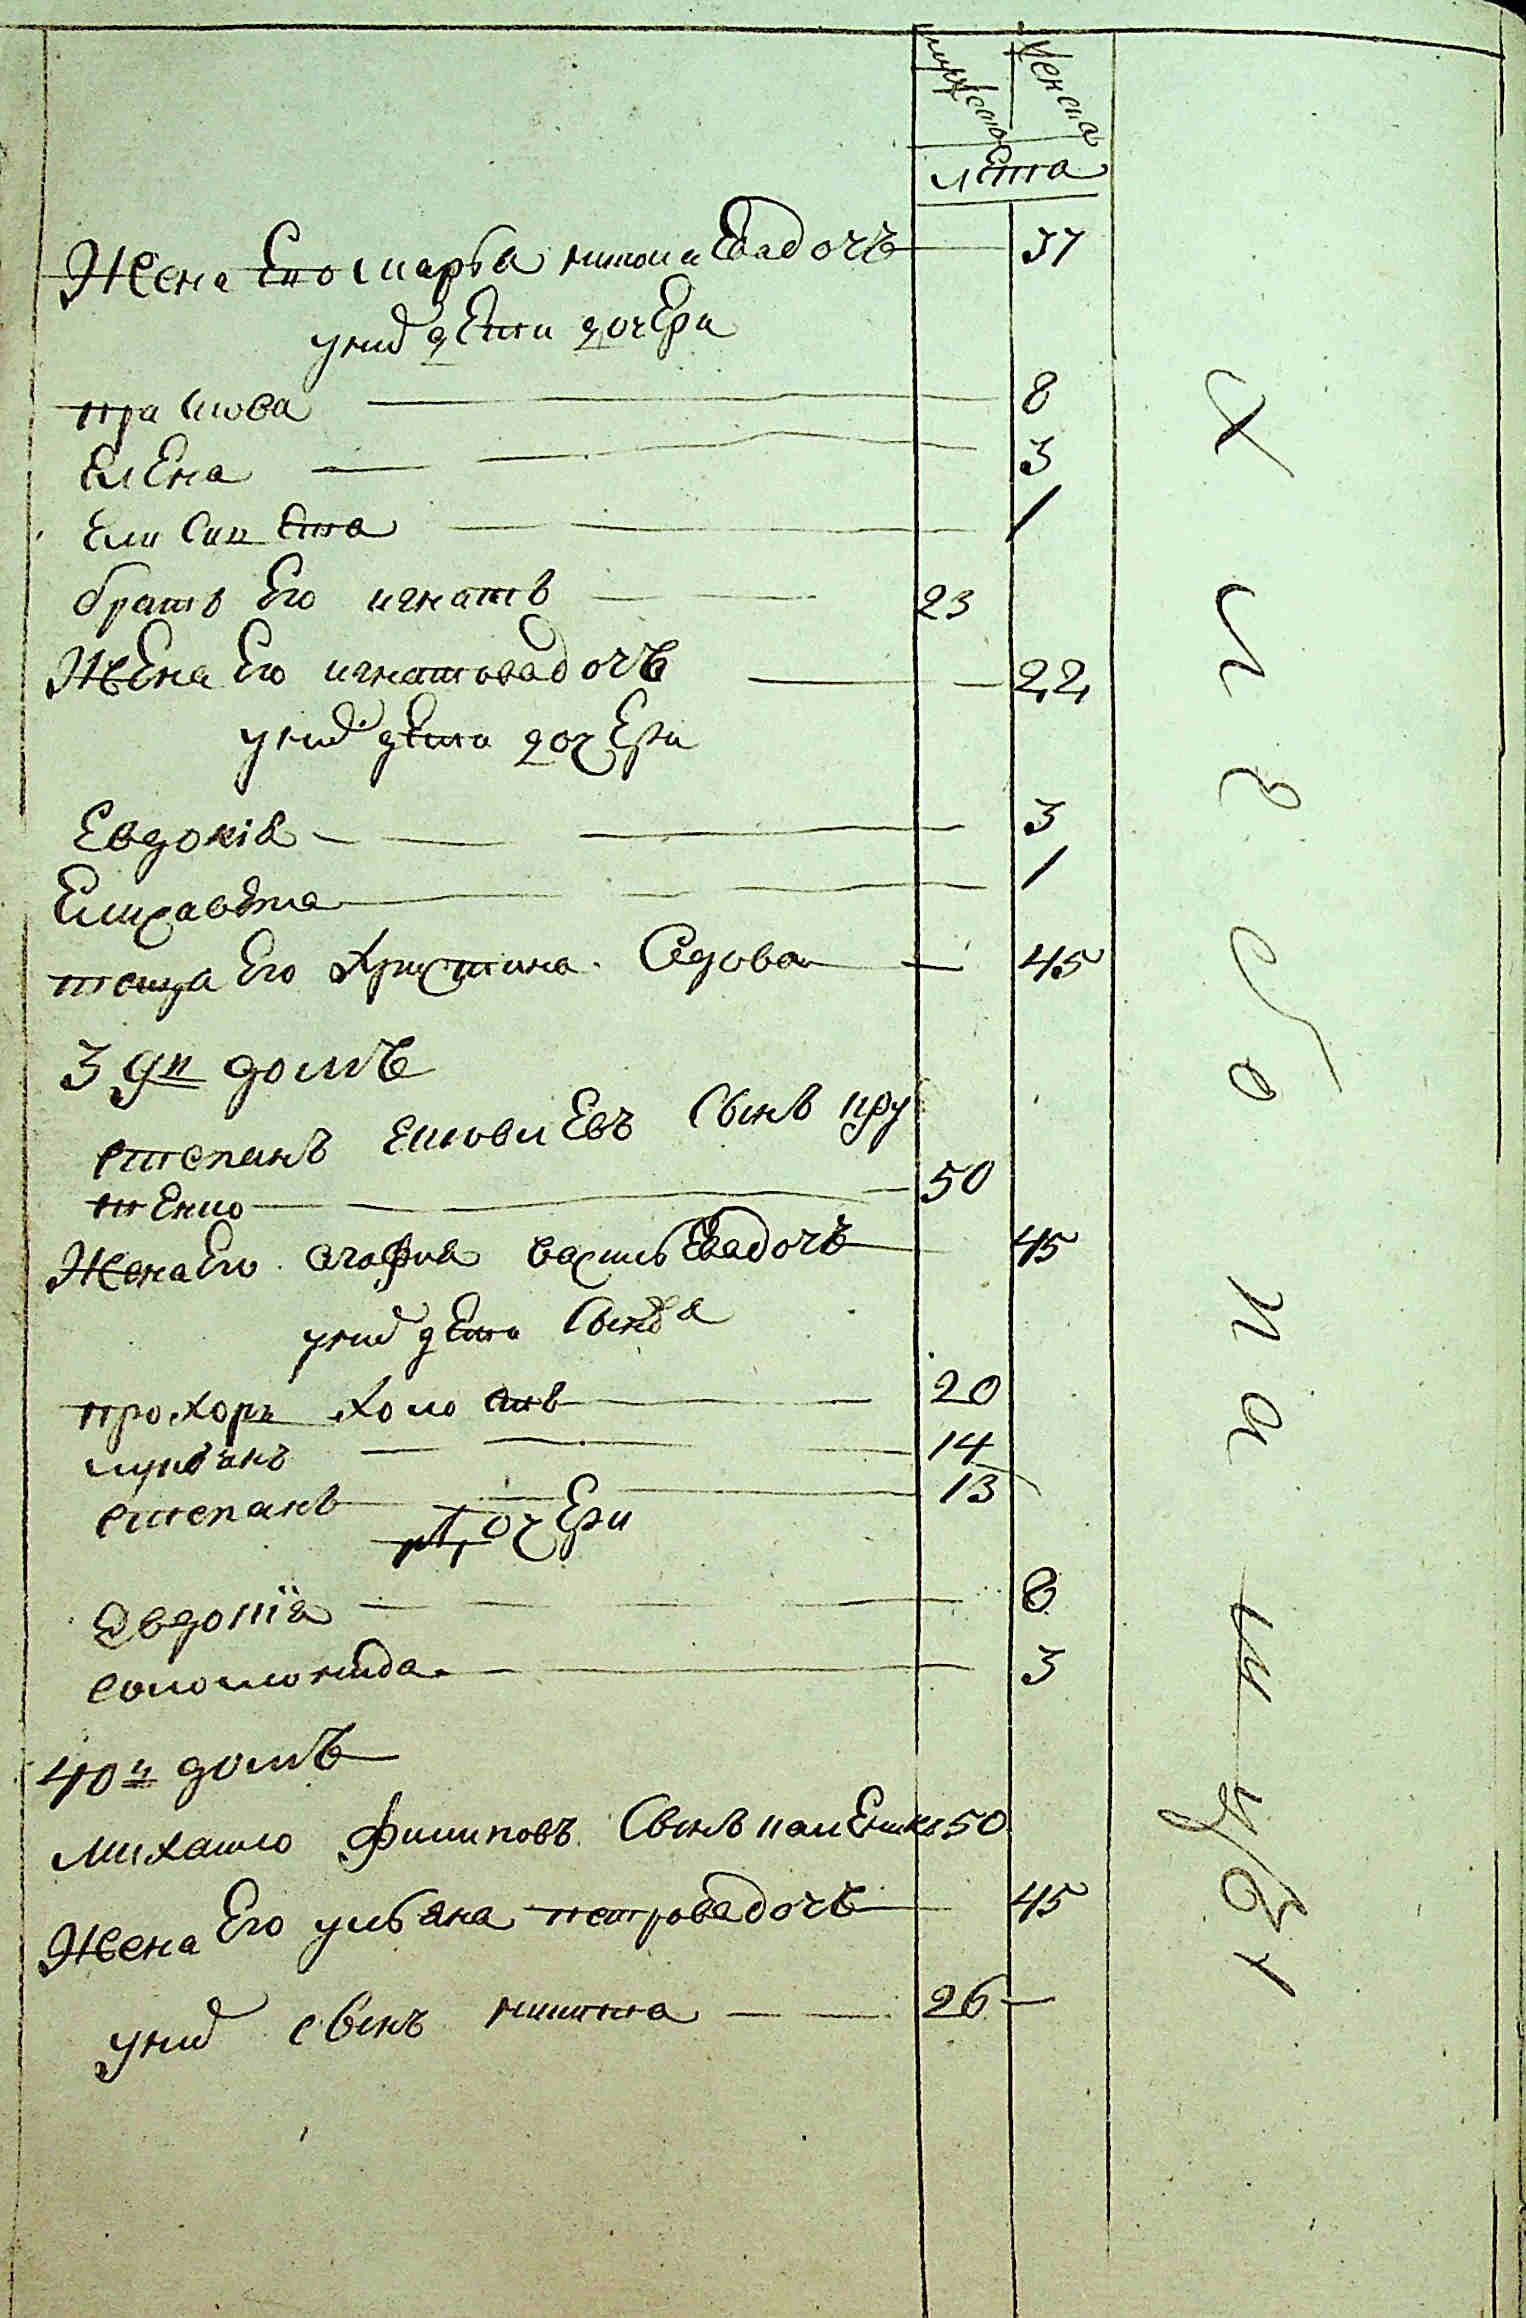 мужеска
женска
лѣта
Жена Его марѳа никола Евадочъ 37
унид дЕти дочЕри
праскова 8
ЕлЕна 3
Ели сав Ета 1
братъ Его игнатъ 23
ЖЕна Его игнатовадочЪ 22
унид дЕти дочЕри
Евдокіа 3
Елизавѣта 1
теща Его Христина Седова 45
39й домъ
степанъ Е Евъ Сынъ пру
тЕнко 50
Жена Его агафиа василь ЕвадочЪ 45
унид дЕти Сынова
прохоръ холостъ 20
лукианъ 14
степанъ 13
дочЕри
Евдокіа 8
соломонида 3
40й домъ
михаило филиповъ Сынъ 50
Жена Его ульана петровадочЪ 45
унид сынъ никита 26
хлебопашцы